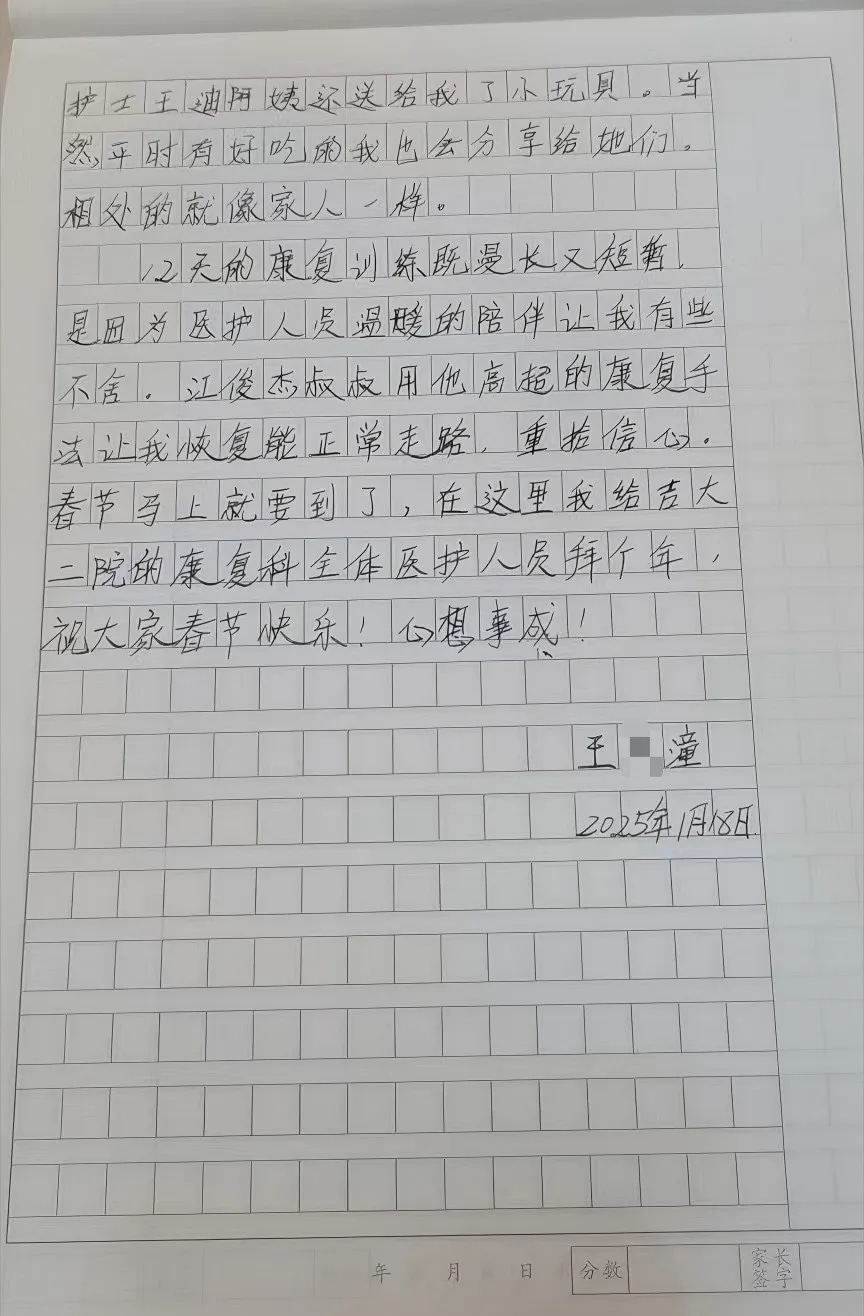 护士王迪阿姨还送给我了小玩具。当
然,平时有好吃的我也会分享给她们。
相处的就像家人一样。
12天的康复训练既漫长又短暂,
是因为医护人员温暖的陪伴让我有些
不舍。江俊杰叔叔用他高超的康复手
法让我恢复能正常走路,重拾信心。
春节马上就要到了,在这里我给吉大
二院的康复科全体医护人员拜个年,
祝大家春节快乐!心想事成!
王 潼
2025年1月18日
年 月 日 分数 家长签字